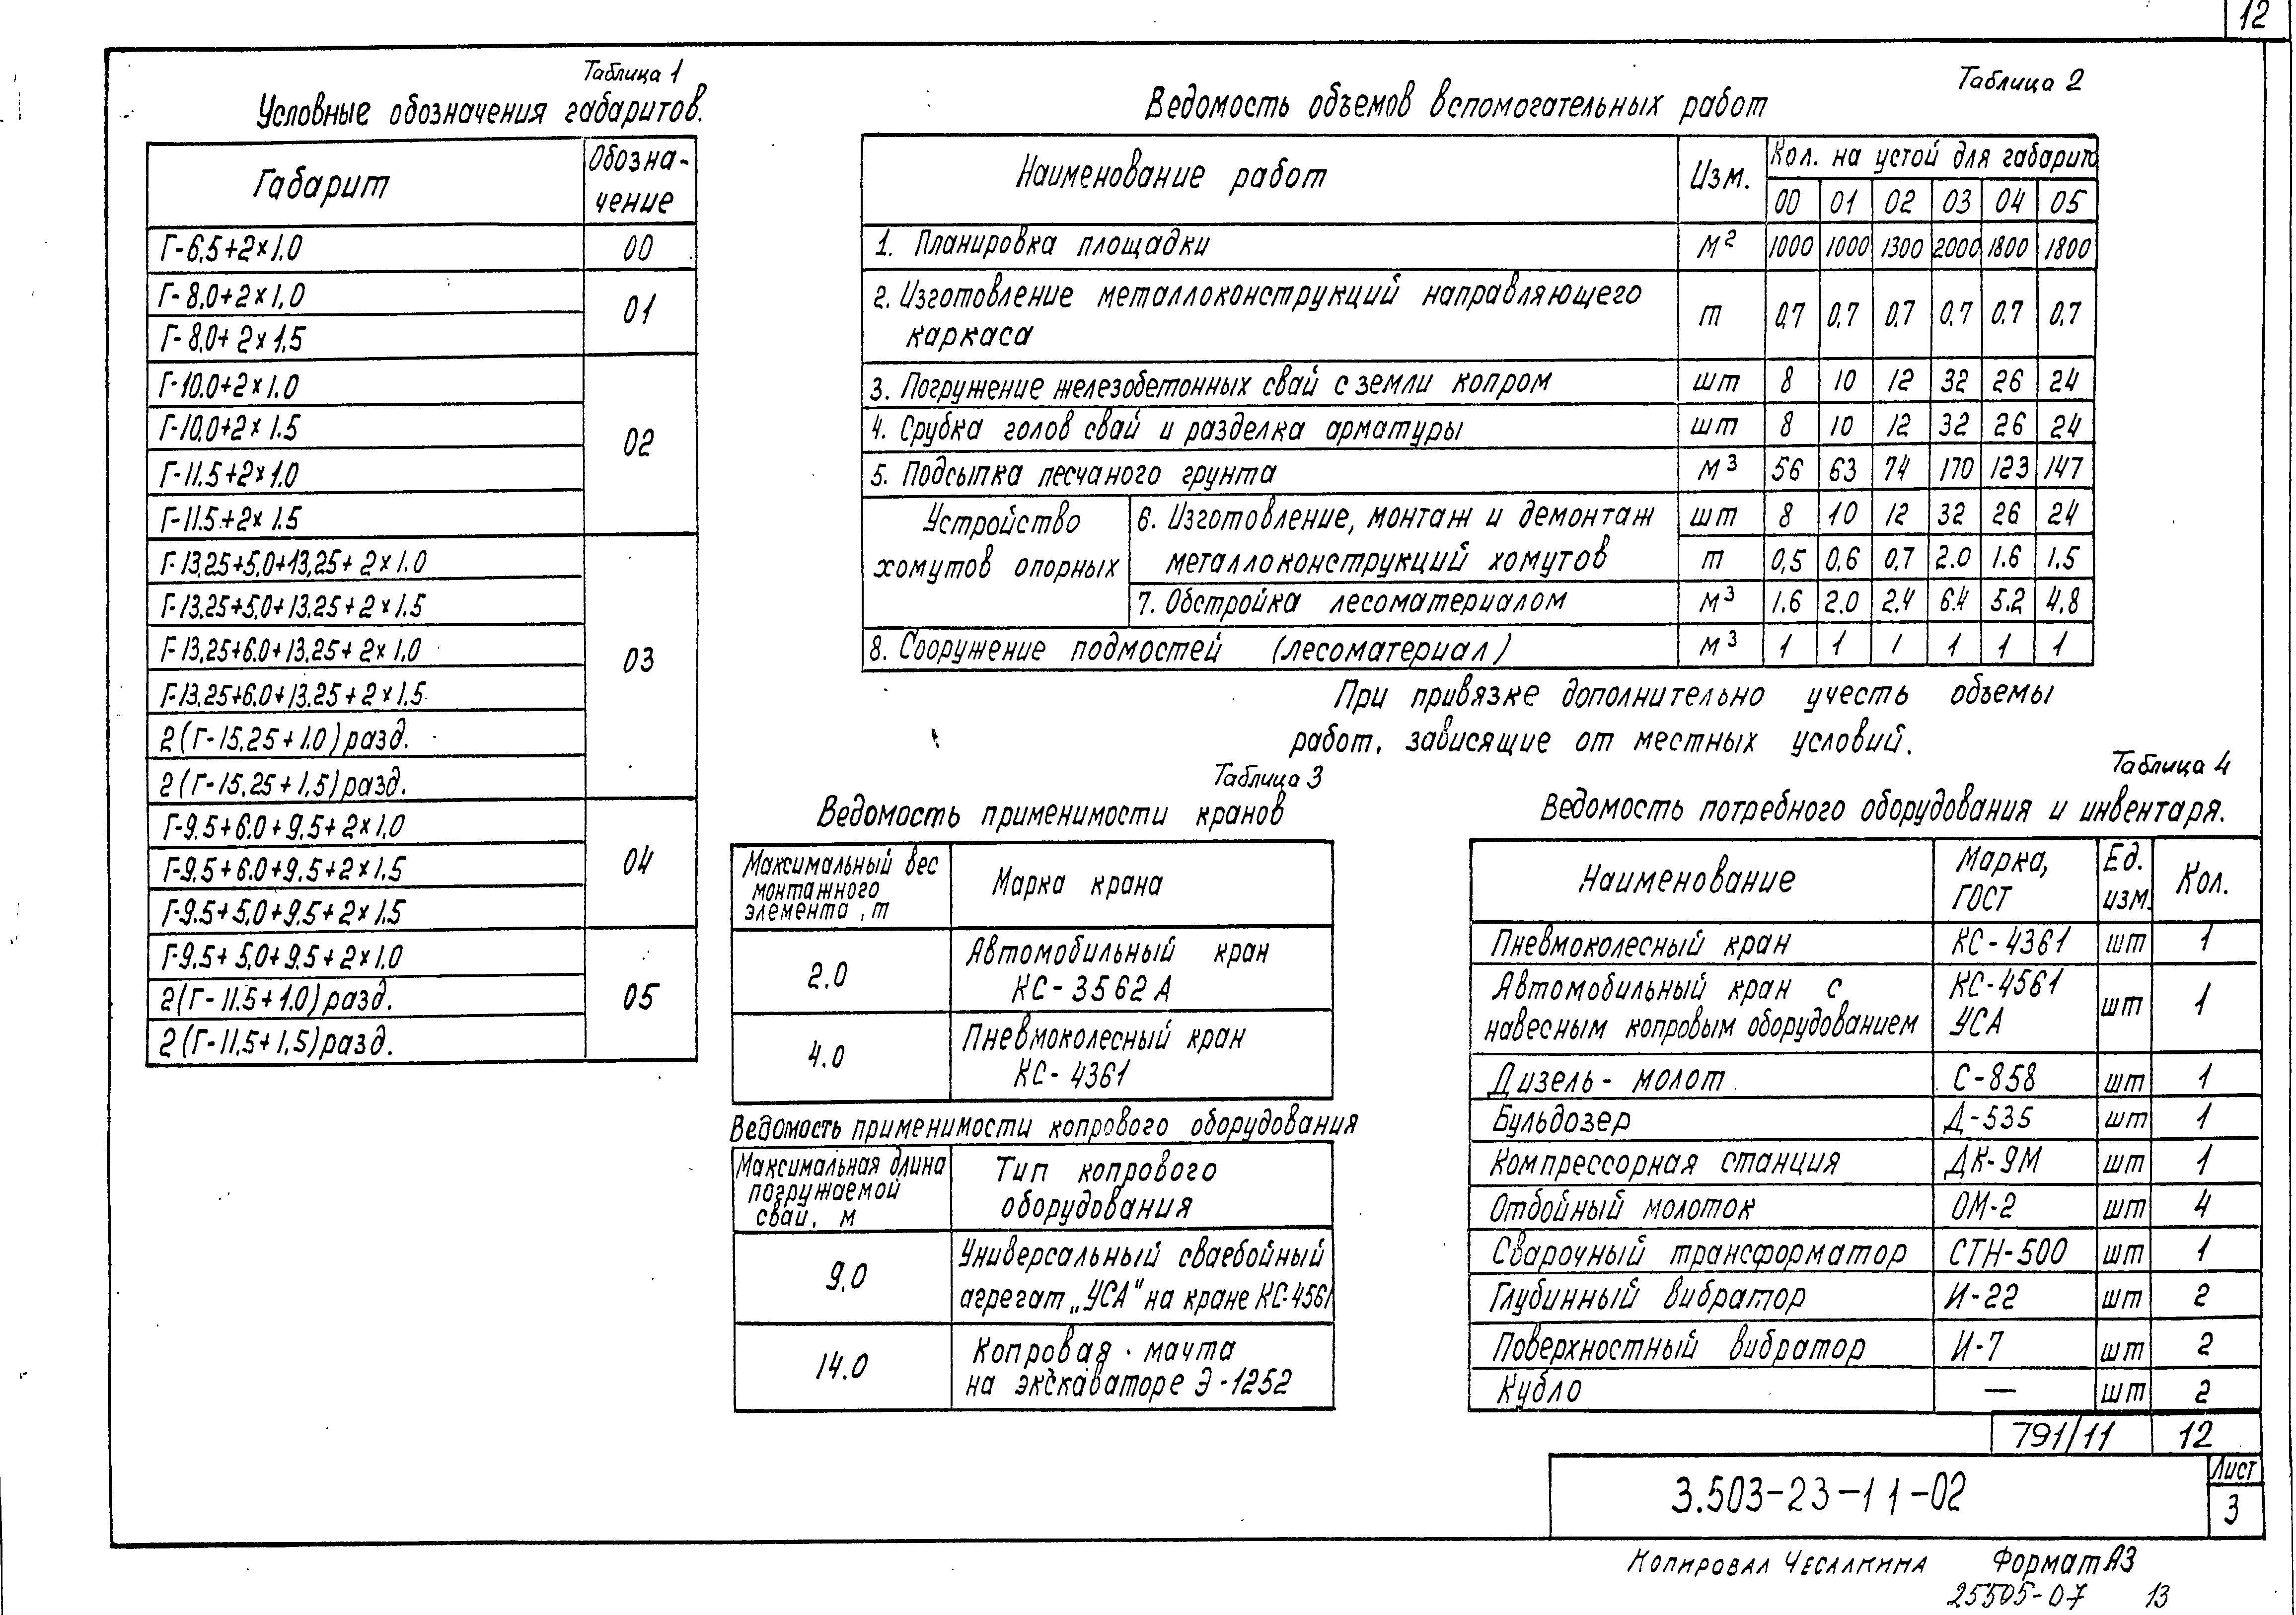 12
Таблица 1
Условные обозначения габаритов.
Габарит
Обозна-
чение
Г-6,5+2×1.0
00
Г-8,0+2×1,0
01
Г-8,0+2×1,5
Г-10.0+2×1.0
02
Г-10,0+2×1.5
Г-11.5+2×1.0
Г-11.5+2×1.5
Г-13,25+5,0+13,25+2×1.0
03
Г-13,25+5,0+13,25+2×1.5
Г-13,25+6.0+13,25+2×1,0
Г-13,25+6.0+13,25+2×1,5
2(Г-15,25+1.0)разд.
2(Г-15,25+1,5)разд.
Г-9.5+6.0+9,5+2×1,0
04
Г-9,5+6.0+9,5+2×1,5
Г-9.5+5,0+9,5+2×1.5
Г-9,5+5,0+9,5+2×1,0
05
2(Г-11.5+1.0)разд.
2(Г-11,5+1,5)разд.
Таблица 2
Ведомость объемов вспомогательных работ
Наименование работ
Изм.
Кол. на устой для габарита
00 01 02 03 04 05
1. Планировка площадки м² 1000 1000 1300 2000 1800 1800
2. Изготовление металлоконструкций направляющего
каркаса
т 0,7 0,7 0,7 0,7 0,7 0,7
3. Погружение железобетонных свай с земли копром шт 8 10 12 32 26 24
4. Срубка голов свай и разделка арматуры шт 8 10 12 32 26 24
5. Подсыпка песчаного грунта м³ 56 63 74 170 123 147
Устройство
хомутов опорных
6. Изготовление, монтаж и демонтаж шт 8 10 12 32 26 24
металлоконструкций хомутов т 0,5 0,6 0,7 2.0 1.6 1.5
7. Обстройка лесоматериалом м³ 1.6 2.0 2.4 6.4 5.2 4.8
8. Сооружение подмостей (лесоматериал) м³ 1 1 1 1 1 1
При привязке дополнительно учесть объемы
работ, зависящие от местных условий.
Таблица 3
Ведомость применимости кранов
Максимальный вес
монтажного
элемента, т
Марка крана
2.0
Автомобильный кран
КС-3562А
4.0
Пневмоколесный кран
КС-4361
Ведомость применимости копрового оборудования
Максимальная длина
погружаемой
сваи, м
Тип копрового
оборудования
9.0
Универсальный сваебойный
агрегат „УСА" на кране КС-4561
14.0
Копровая мачта
на экскаваторе Э-1252
Таблица 4
Ведомость потребного оборудования и инвентаря.
Наименование
Марка,
ГОСТ
Ед.
изм.
Кол.
Пневмоколесный кран КС-4361 шт 1
Автомобильный кран с
навесным копровым оборудованием
КС-4561
УСА
шт 1
Дизель-молот С-858 шт 1
Бульдозер Д-535 шт 1
Компрессорная станция ДК-9М шт 1
Отбойный молоток ОМ-2 шт 4
Сварочный трансформатор СТН-500 шт 1
Глубинный вибратор И-22 шт 2
Поверхностный вибратор И-7 шт 2
Кубло — шт 2
791/11 12
3.503-23-11-02
Лист
3
Копировал Чесалкина Формат А3
25505-07 13